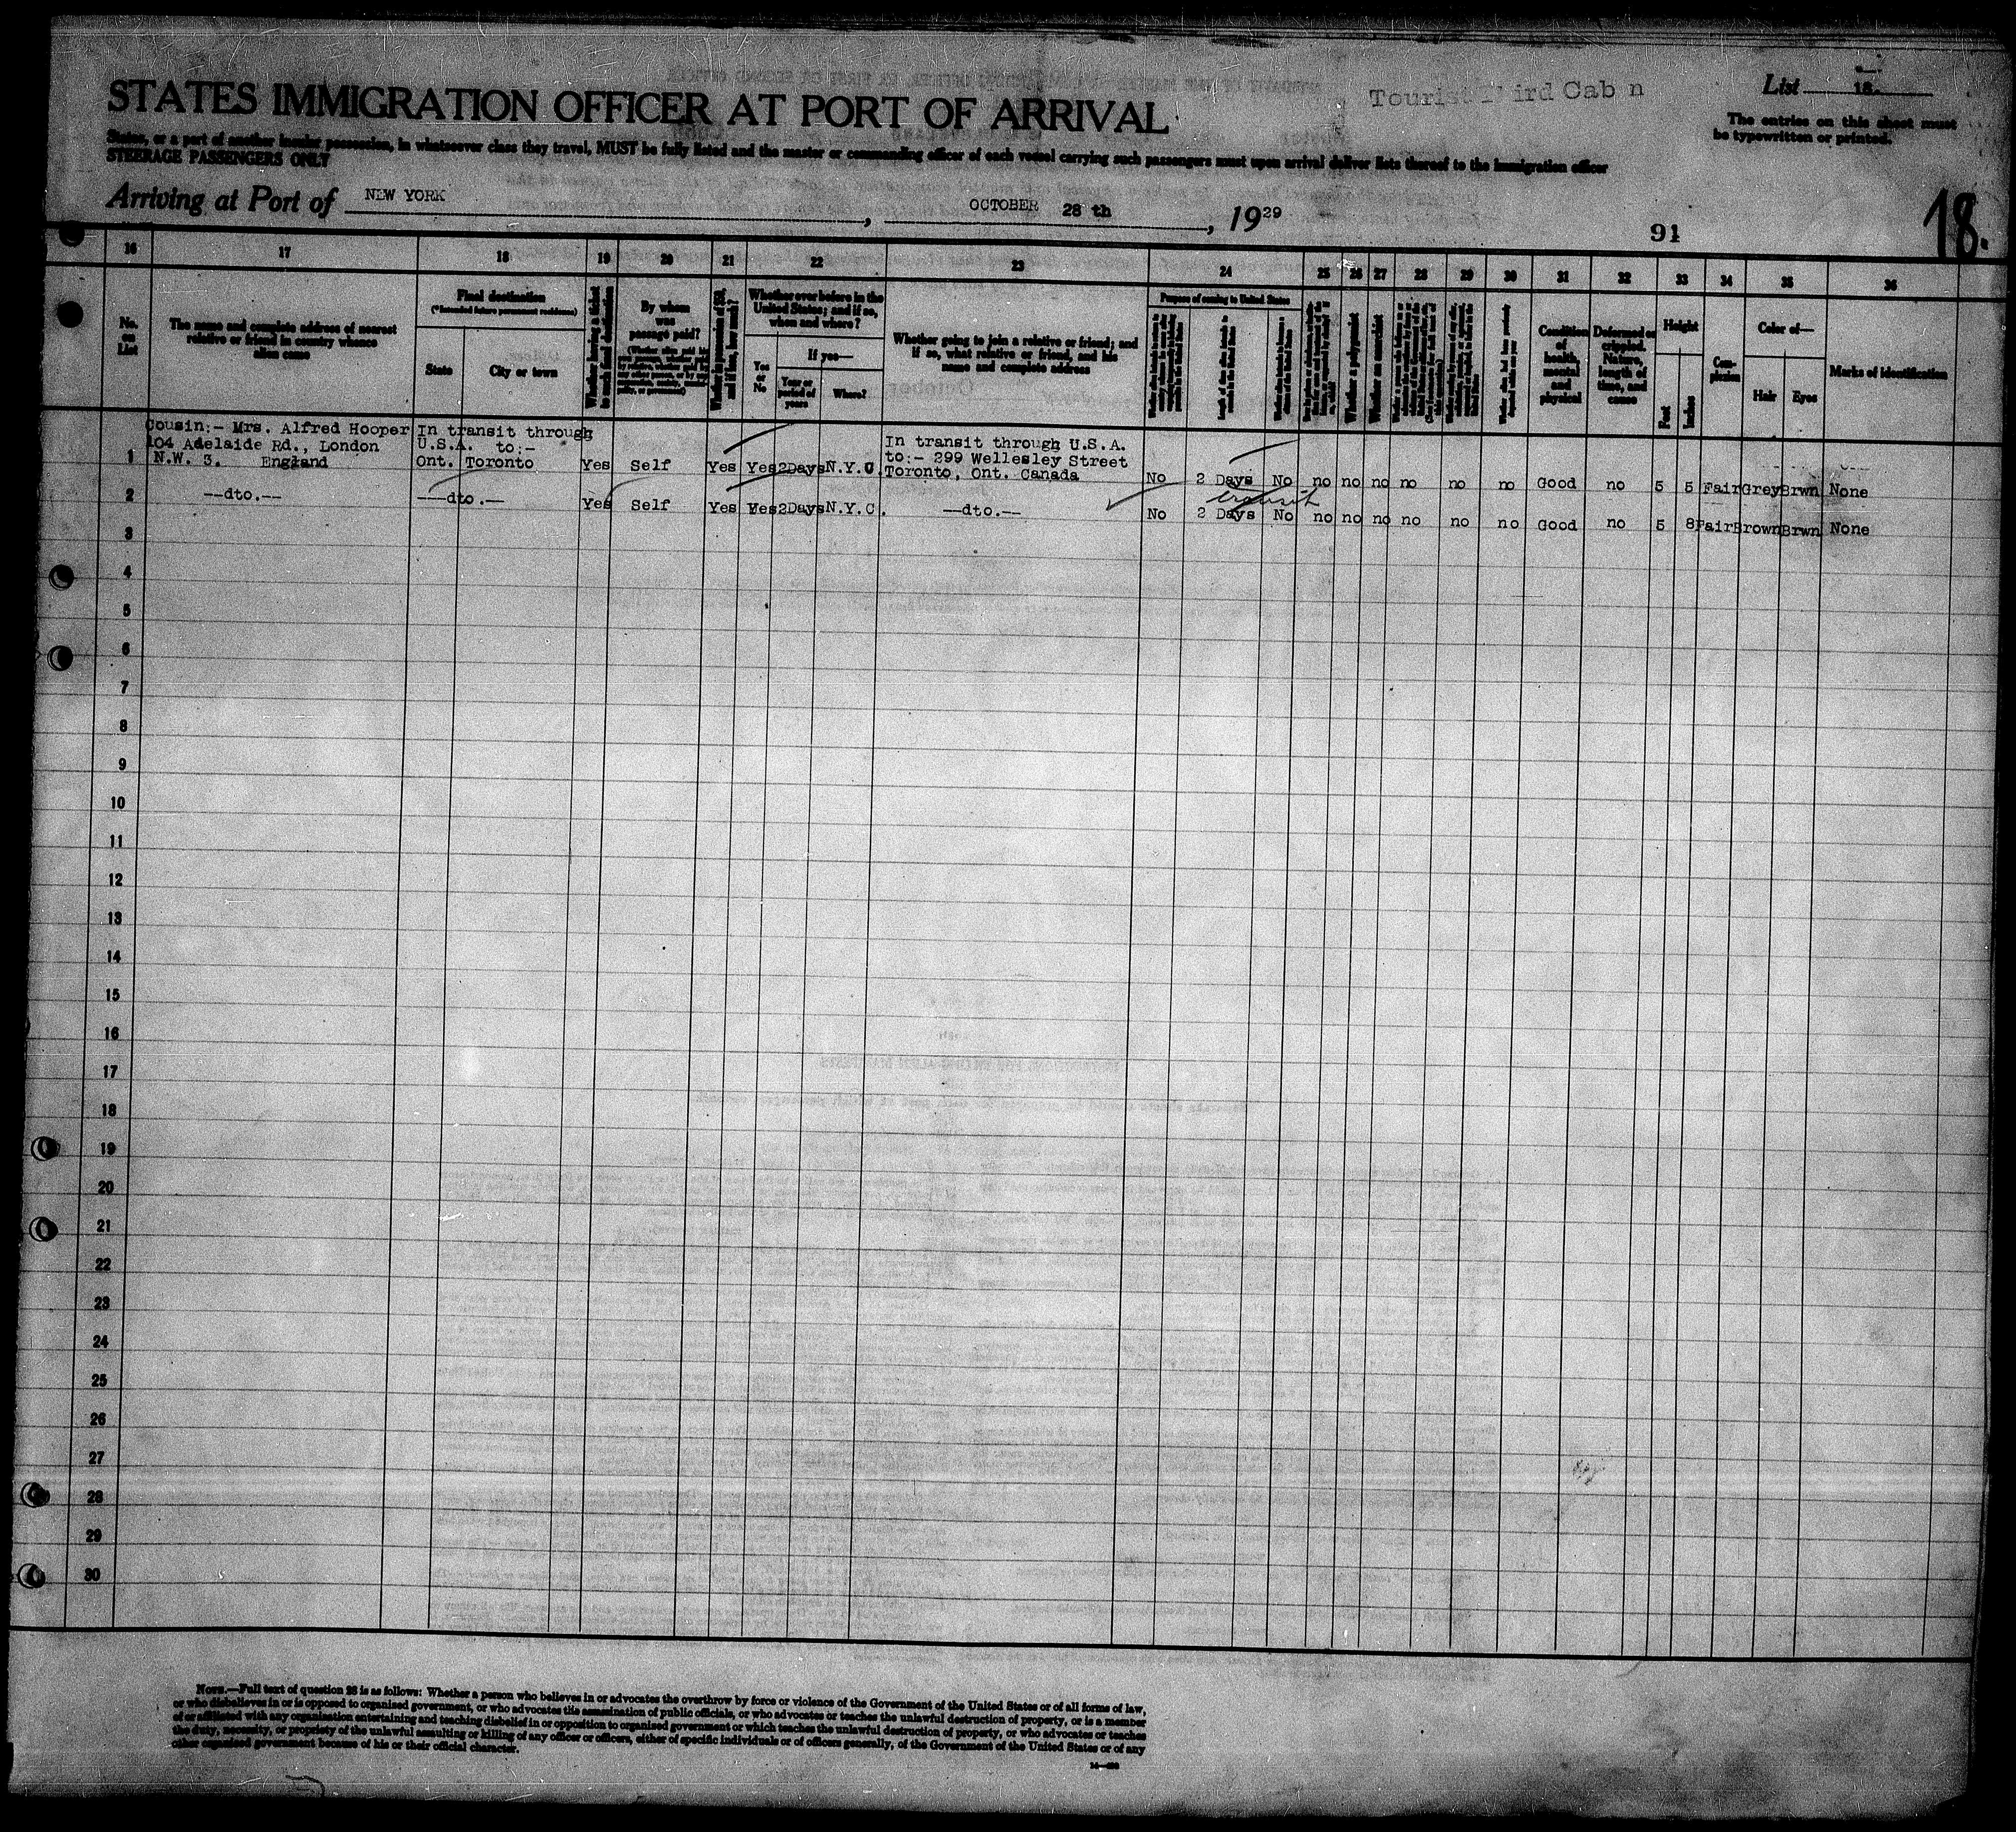 STATES IMMIGRATION OFFICER AT PORT OF ARRIVAL
Tourist Third Cabin
List 18.
The entries on this sheet must
be typewritten or printed.
States, or a part of another insular possession, in whatsoever class they travel, MUST be fully listed and the master or commanding officer of each vessel carrying such passengers must upon arrival deliver lists thereof to the immigration officer
STEERAGE PASSENGERS ONLY
Arriving at Port of NEW YORK, OCTOBER 28 th, 1929
91
18.
16 17 18 19 20 21 22 23 24 25 26 27 28 29 30 31 32 33 34 35 36
No.
on
List
The name and complete address of nearest
relative or friend in country whence
alien came
Final destination
(*Intended future permanent residence)
State
City or town
Whether having a ticket
to such final destination
By whom
was
passage paid?
Whether in possession of $50,
and if less, how much?
Whether ever before in the
United States; and if so,
when and where?
Yes
or
No
If yes—
Year or
period of
years
Where?
Whether going to join a relative or friend; and
if so, what relative or friend, and his
name and complete address
Purpose of coming to United States
Whether a polygamist
Whether an anarchist
Condition
of
health,
mental
and
physical
Deformed or
crippled.
Nature,
length of
time, and
cause
Height
Feet
Inches
Com-
plexion
Color of—
Hair
Eyes
Marks of identification
Cousin:- Mrs. Alfred Hooper
104 Adelaide Rd., London
N.W. 3. England
In transit through
U.S.A. to:-
Ont. Toronto
In transit through U.S.A.
to:- 299 Wellesley Street
Toronto, Ont. Canada
1 Yes Self Yes Yes 2Days N.Y.C. No 2 Days No no no no no no no Good no 5 5 Fair Grey Brwn None
transit
2 —dto.— —dto.— Yes Self Yes Yes 2Days N.Y.C. —dto.— No 2 Days No no no no no no no Good no 5 8 Fair Brown Brwn None
3
4
5
6
7
8
9
10
11
12
13
14
15
16
17
18
19
20
21
22
23
24
25
26
27
28
29
30
NOTE.—Full text of question 28 is as follows: Whether a person who believes in or advocates the overthrow by force or violence of the Government of the United States or of all forms of law,
or who disbelieves in or is opposed to organized government, or who advocates the assassination of public officials, or who advocates or teaches the unlawful destruction of property, or is a member
of or affiliated with any organization entertaining and teaching disbelief in or opposition to organized government or which teaches the unlawful destruction of property, or who advocates or teaches
the duty, necessity, or propriety of the unlawful assaulting or killing of any officer or officers, either of specific individuals or of officers generally, of the Government of the United States or of any
other organized government because of his or their official character.